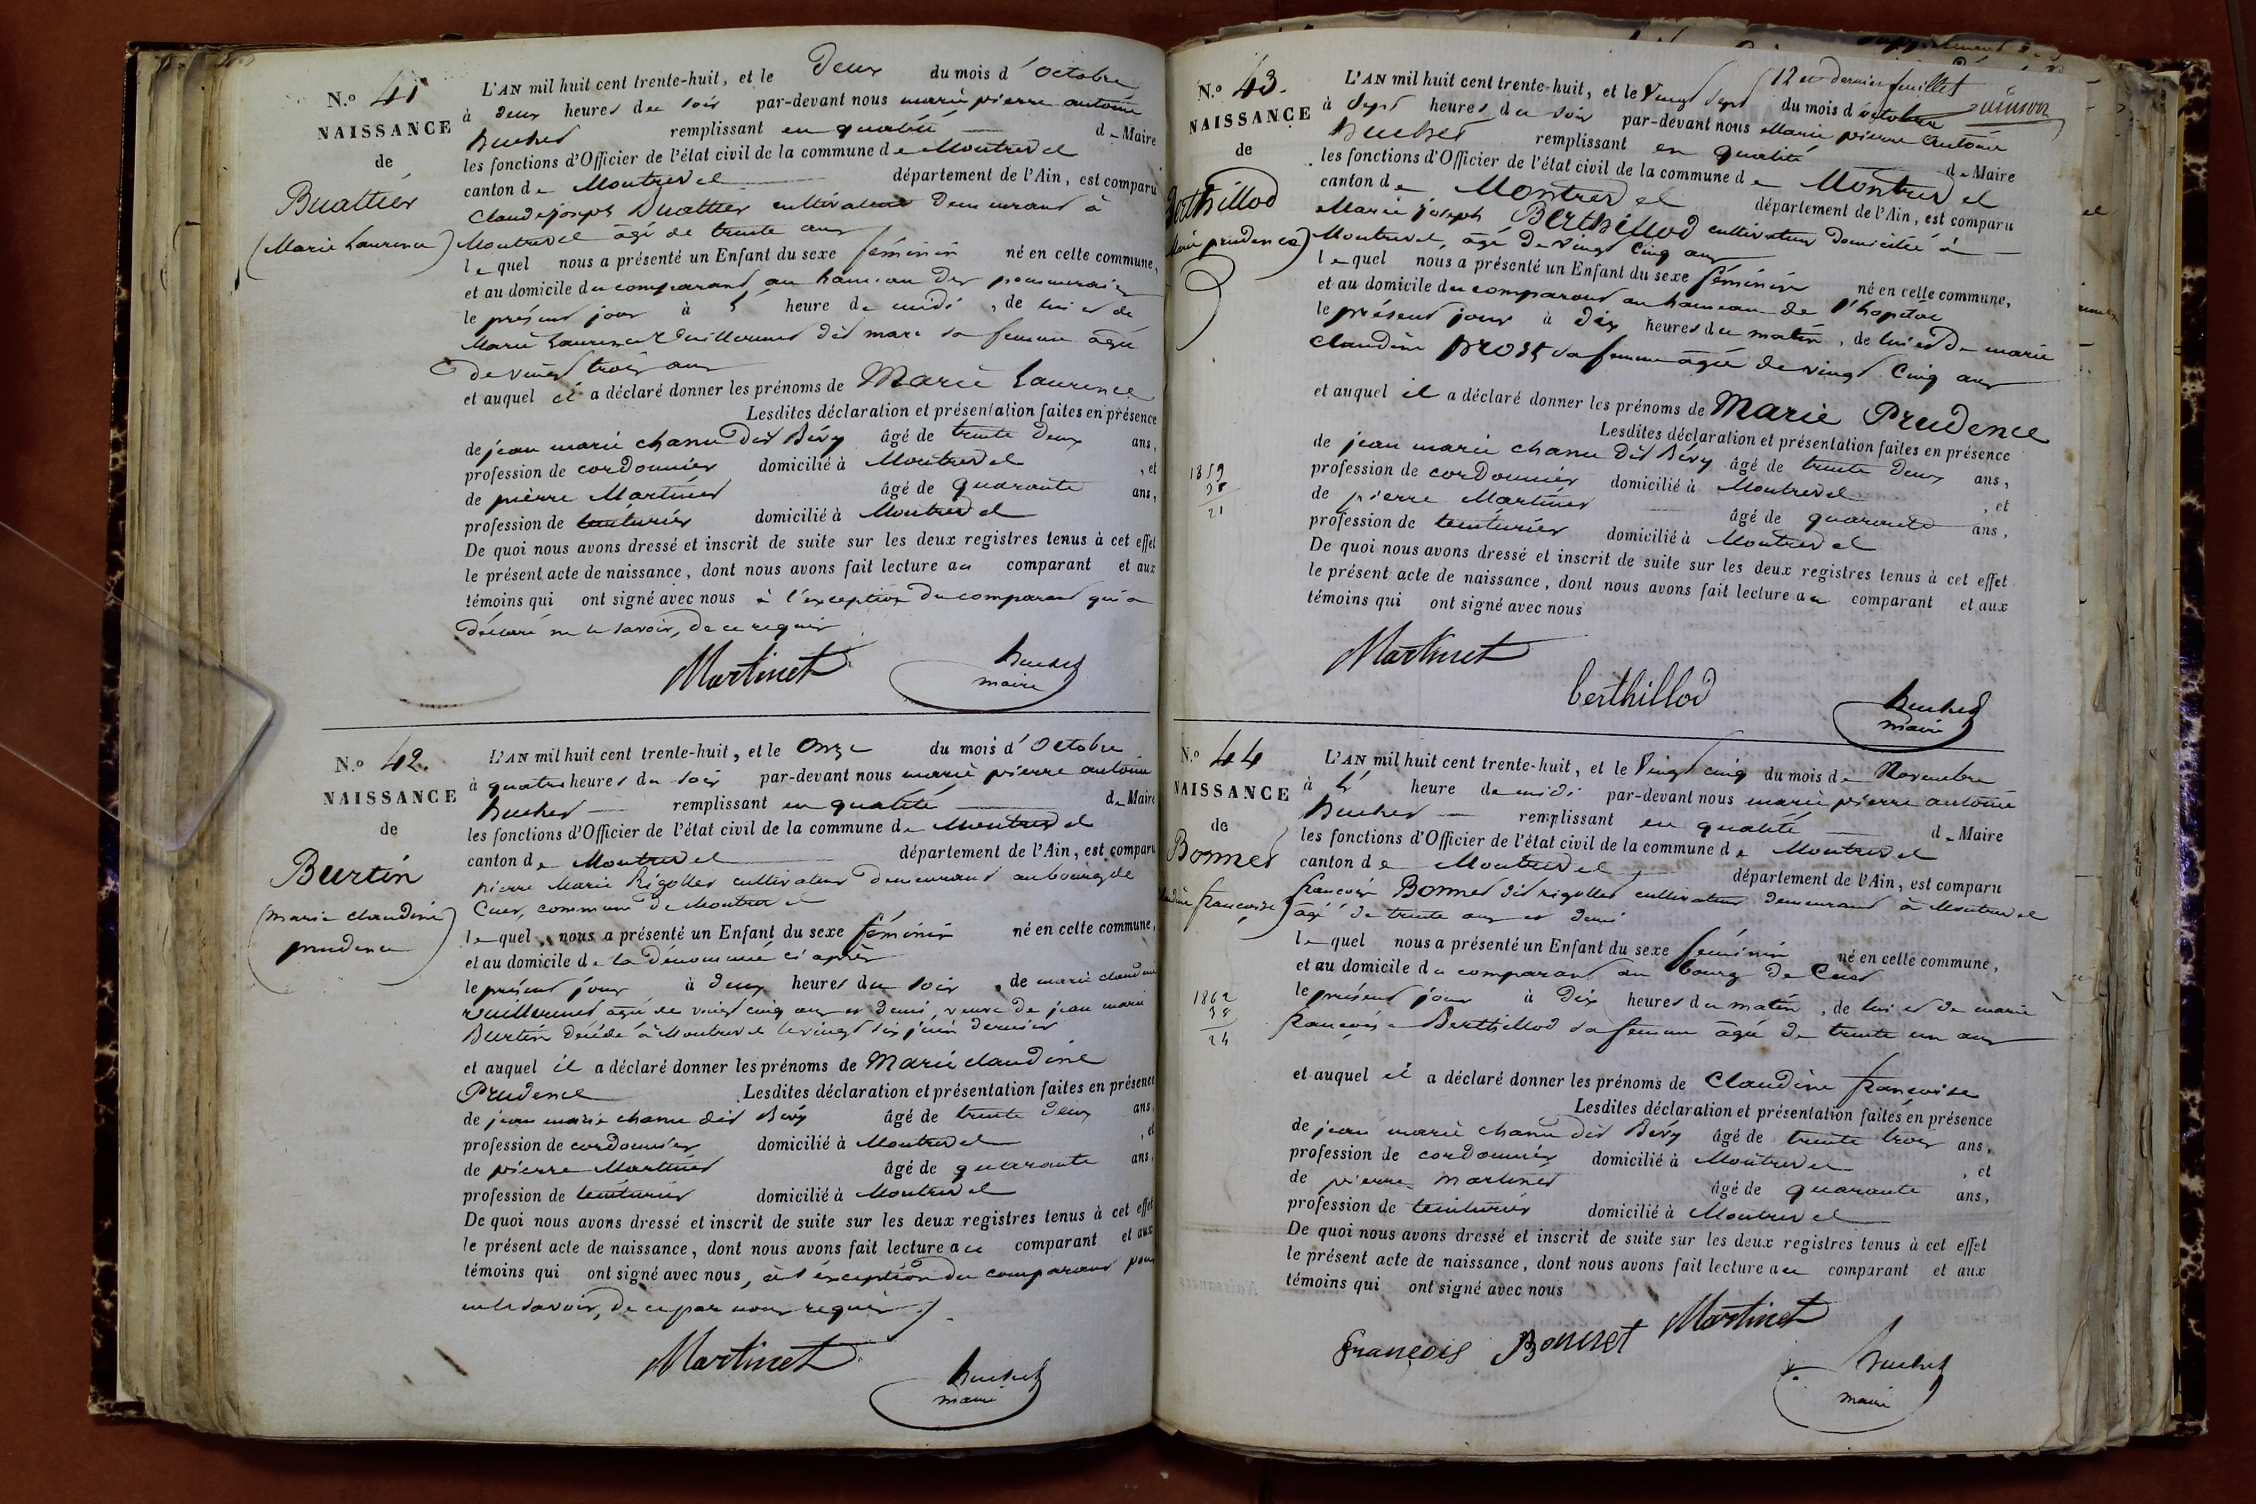 N.o 41
NAISSANCE
de
Buattier
(Marie Laurence)
L'AN mil huit cent trente-huit, et le Deux du mois d'Octobre
à deux heures du soir par-devant nous marie pierre antoine
Buchet remplissant en qualité de Maire
les fonctions d'Officier de l'état civil de la commune de Montrevel
canton de Montrevel département de l'Ain, est comparu
Claude joseph Buattier cultivateur demeurant à
Montrevel âgé de trente ans
lequel nous a présenté un Enfant du sexe féminin né en cette commune,
et au domicile du comparant au hameau des
le présent jour à heure de midi, de lui et de
Marie Laurence Vuillermet dit mare sa femme âgée
de vingt trois ans
et auquel il a déclaré donner les prénoms de Marie Laurence
Lesdites déclaration et présentation faites en présence
de jean marie chanu dit Bévy âgé de trente deux ans,
profession de cordonnier domicilié à Montrevel, et
de pierre Martinet âgé de quarante ans,
profession de teinturier domicilié à Montrevel
De quoi nous avons dressé et inscrit de suite sur les deux registres tenus à cet effet
le présent acte de naissance, dont nous avons fait lecture au comparant et aux
témoins qui ont signé avec nous à l'exception du comparant qui a
déclaré ne le savoir, de ce requis
Martinet
Buchet
maire
N.o 42.
NAISSANCE
de
Burtin
(marie claudine
prudence)
L'AN mil huit cent trente-huit, et le Onze du mois d'Octobre
à quatre heures du soir par-devant nous marie pierre antoine
Buchet remplissant en qualité de Maire
les fonctions d'Officier de l'état civil de la commune de Montrevel
canton de Montrevel département de l'Ain, est comparu
pierre Marie Rigollet cultivateur demeurant au bourg de
Cuet, commune de Montrevel
lequel nous a présenté un Enfant du sexe féminin né en cette commune,
et au domicile de la dénommée ci après
le présent jour à deux heures du soir, de marie claudine
Vuillermet âgée de vingt cinq ans et demi, veuve de jean marie
Burtin décédé à Montrevel le vingt six juin dernier
et auquel il a déclaré donner les prénoms de Marie claudine
Prudence Lesdites déclaration et présentation faites en présence
de jean marie chanu dit Bévy âgé de trente deux ans,
profession de cordonnier domicilié à Montrevel, et
de pierre Martinet âgé de quarante ans,
profession de teinturier domicilié à Montrevel
De quoi nous avons dressé et inscrit de suite sur les deux registres tenus à cet effet
le présent acte de naissance, dont nous avons fait lecture au comparant et aux
témoins qui ont signé avec nous, à l'exception du comparant pour
ne le savoir, de ce par nous requis
Martinet
Buchet
maire
12 et dernier feuillet
N.o 43.
NAISSANCE
de
Berthillod
(Marie prudence)
L'AN mil huit cent trente-huit, et le Vingt Sept du mois d'octobre
à Sept heures du soir par-devant nous Marie pierre Antoine
Buchet remplissant en qualité de Maire
les fonctions d'Officier de l'état civil de la commune de Montrevel
canton de Montrevel département de l'Ain, est comparu
Marie joseph Berthillod cultivateur domicilié à
Montrevel, âgé de vingt cinq ans
lequel nous a présenté un Enfant du sexe féminin né en cette commune,
et au domicile du comparant au hameau de l'hopital
le présent jour à dix heures du matin, de lui et de marie
Claudine Prost sa femme âgée de vingt cinq ans
et auquel il a déclaré donner les prénoms de Marie Prudence
Lesdites déclaration et présentation faites en présence
de jean marie chanu dit Bévy âgé de trente deux ans,
profession de cordonnier domicilié à Montrevel, et
de pierre Martinet âgé de quarante ans,
profession de teinturier domicilié à Montrevel
De quoi nous avons dressé et inscrit de suite sur les deux registres tenus à cet effet
le présent acte de naissance, dont nous avons fait lecture au comparant et aux
témoins qui ont signé avec nous
1859
38
21
Martinet
berthillod
Buchet
maire
N.o 44
NAISSANCE
de
Bonnet
françoise)
L'AN mil huit cent trente-huit, et le Vingt cinq du mois de Novembre
à heure de midi par-devant nous marie pierre antoine
Buchet remplissant en qualité de Maire
les fonctions d'Officier de l'état civil de la commune de Montrevel
canton de Montrevel département de l'Ain, est comparu
françois Bonnet dit rigollet cultivateur demeurant à Montrevel
âgé de trente ans et demi
lequel nous a présenté un Enfant du sexe féminin né en cette commune,
et au domicile du comparant au bourg de Cuet
le présent jour à Dix heures du matin, de lui et de marie
françoise Berthillod sa femme âgée de trente un ans
et auquel il a déclaré donner les prénoms de Claudine françoise
Lesdites déclaration et présentation faites en présence
de jean marie chanu dit Bévy âgé de trente trois ans,
profession de cordonnier domicilié à Montrevel, et
de pierre martinet âgé de quarante ans,
profession de teinturier domicilié à Montrevel
De quoi nous avons dressé et inscrit de suite sur les deux registres tenus à cet effet
le présent acte de naissance, dont nous avons fait lecture au comparant et aux
témoins qui ont signé avec nous
1862
38
24
François Bonnet Martinet
Buchet
maire